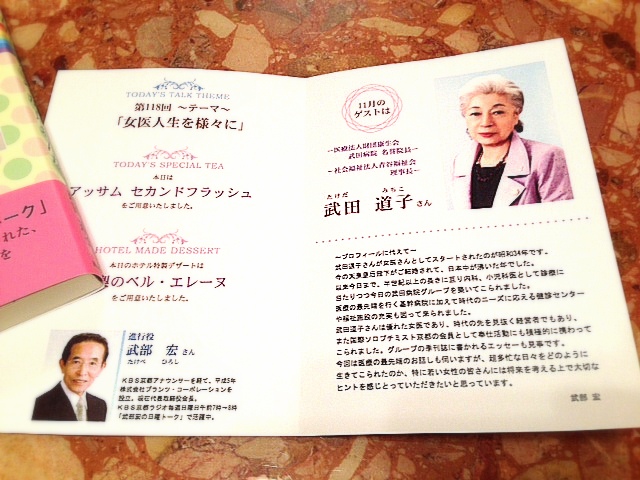 ーク」
れた、
を
TODAY'S TALK THEME
第118回 ～テーマ～
「女医人生を様々に」
TODAY'S SPECIAL TEA
本日は
アッサム セカンドフラッシュ
をご用意いたしました。
HOTEL MADE DESSERT
本日のホテル特製デザートは
のベル・エレーヌ
をご用意いたしました。
進行役
武部 宏 さん
たけべ ひろし
KBS京都アナウンサーを経て、平成5年
株式会社プランツ・コーポレーションを
設立。現在代表取締役会長。
KBS京都ラジオ毎週日曜日午前7時～8時
「武部宏の日曜トーク」で活躍中。
11月の
ゲストは
～医療法人財団康生会
武田病院 名誉院長～
～社会福祉法人青谷福祉会
理事長～
たけだ みちこ
武田 道子 さん
～プロフィールに代えて～
武田道子さんが女医さんとしてスタートされたのが昭和34年です。
今の天皇皇后陛下がご結婚されて、日本中が湧いた年でした。
以来今日まで、半世紀以上の長きに亘り内科、小児科医として診療に
当たりつつ今日の武田病院グループを築いてこられました。
医療の最先端を行く基幹病院に加えて時代のニーズに応える健診センター
や福祉施設の充実も図って来られました。
武田道子さんは優れた女医であり、時代の先を見抜く経営者でもあり、
また国際ソロプチミスト京都の会員として奉仕活動にも積極的に携わって
こられました。グループの季刊誌に書かれるエッセーも見事です。
今回は医療の最先端のお話しも伺いますが、超多忙な日々をどのように
生きてこられたのか、特に若い女性の皆さんには将来を考える上で大切な
ヒントを感じとっていただきたいと思っています。
武部 宏